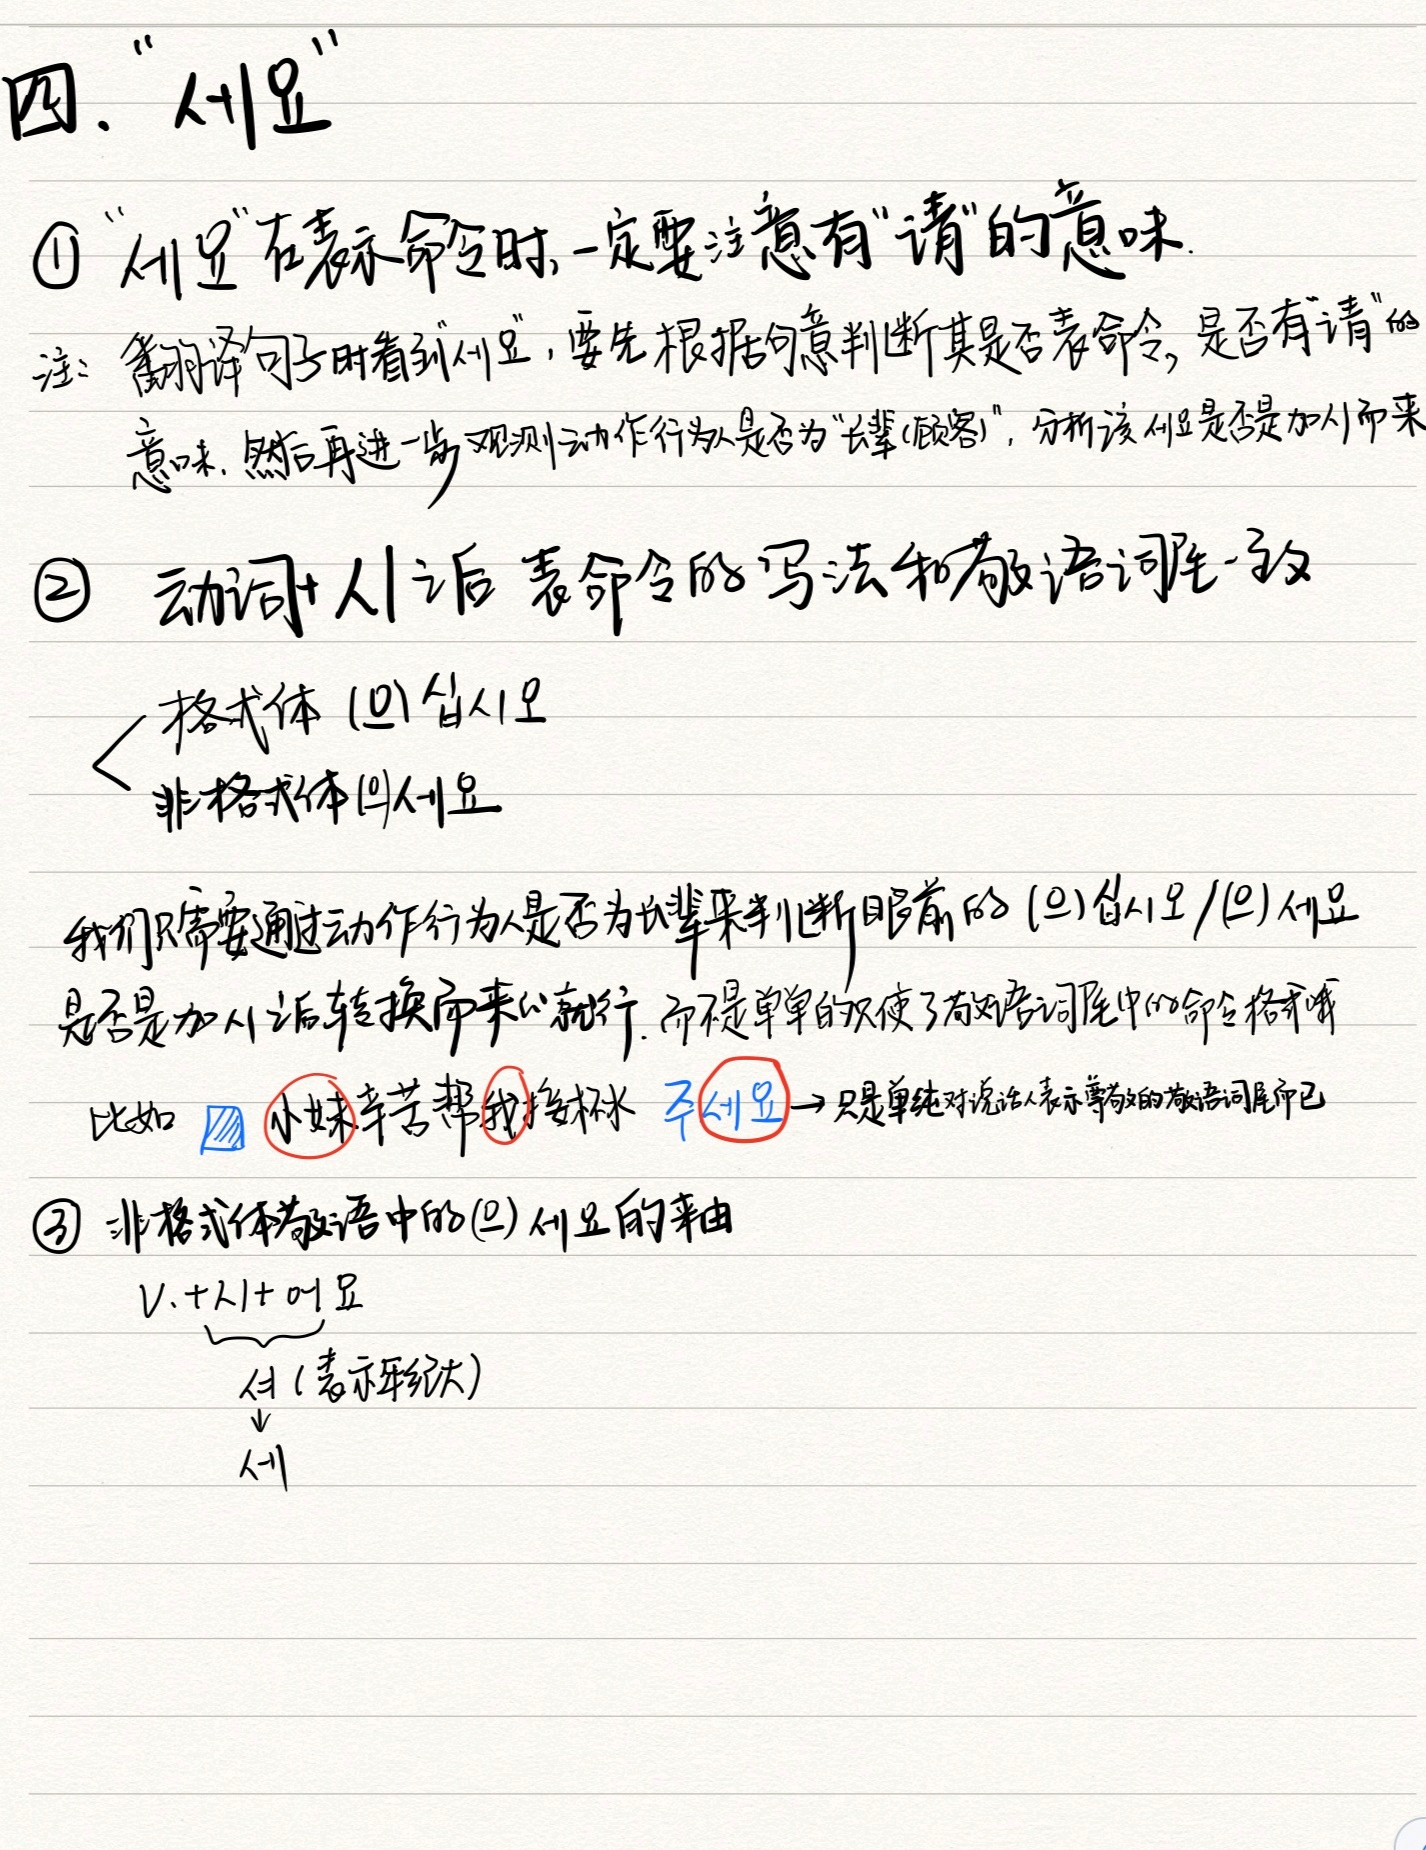 四. “세요”
① “세요”在表示命令时, 一定要注意有“请”的意味.
注: 翻译句子时看到“세요”, 要先根据句意判断其是否表命令, 是否有“请”的
意味, 然后再进一步观测动作行为人是否为“长辈(顾客)”, 分析该세요是否是加시而来
② 动词+시之后 表命令的写法和敬语词尾一致
格式体 (으)십시오
非格式体(으)세요
我们只需要通过动作行为人是否为长辈来判断眼前的 (으)십시오/(으)세요
是否是加시之后转换而来的就行. 而不是单单的只使了敬语词尾中的命令格式哦
比如 小妹辛苦帮我接杯水 주세요→只是单纯对说话人表示尊敬的敬语词尾而已
③ 非格式体敬语中的(으)세요的来由
V.+시+어요
셔(表示年纪大)
↓
세